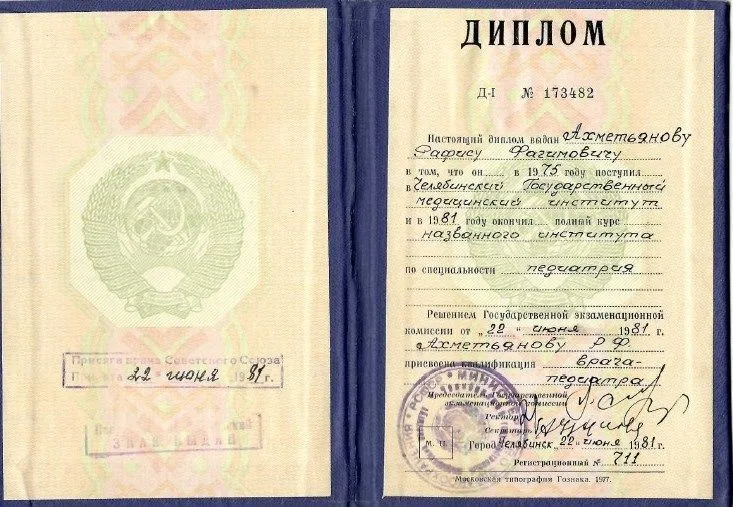 Присяга врача Советского Союза
22 июня 1981 г.
ЗНАК ВЫДАН
ДИПЛОМ
Д-I № 173482
Настоящий диплом выдан Ахметьянову
Рафису Фагимовичу
в том, что он в 1975 году поступил
в Челябинский Государственный
медицинский институт
и в 1981 году окончил полный курс
названного института
по специальности педиатрия
Решением Государственной экзаменационной
комиссии от „22“ июня 1981 г.
Ахметьянову Р.Ф.
присвоена квалификация врача-
педиатра
Председатель Государственной
экзаменационной комиссии
Ректор
Секретарь
М. П.
Город Челябинск, 22 июня 1981 г.
Регистрационный № 711
Московская типография Гознака. 1977.